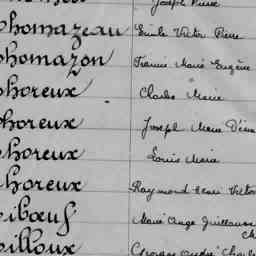 Joseph Pierre
homazeau Emile Victor Pierre
homazon Francis Marie Eugène
horeux Charles Marie
horeux Joseph Marie
horeux Louis Marie
horeux Raymond Henri Victor
ibœuf Marie Ange Guillaume
illoux Georges André Charles